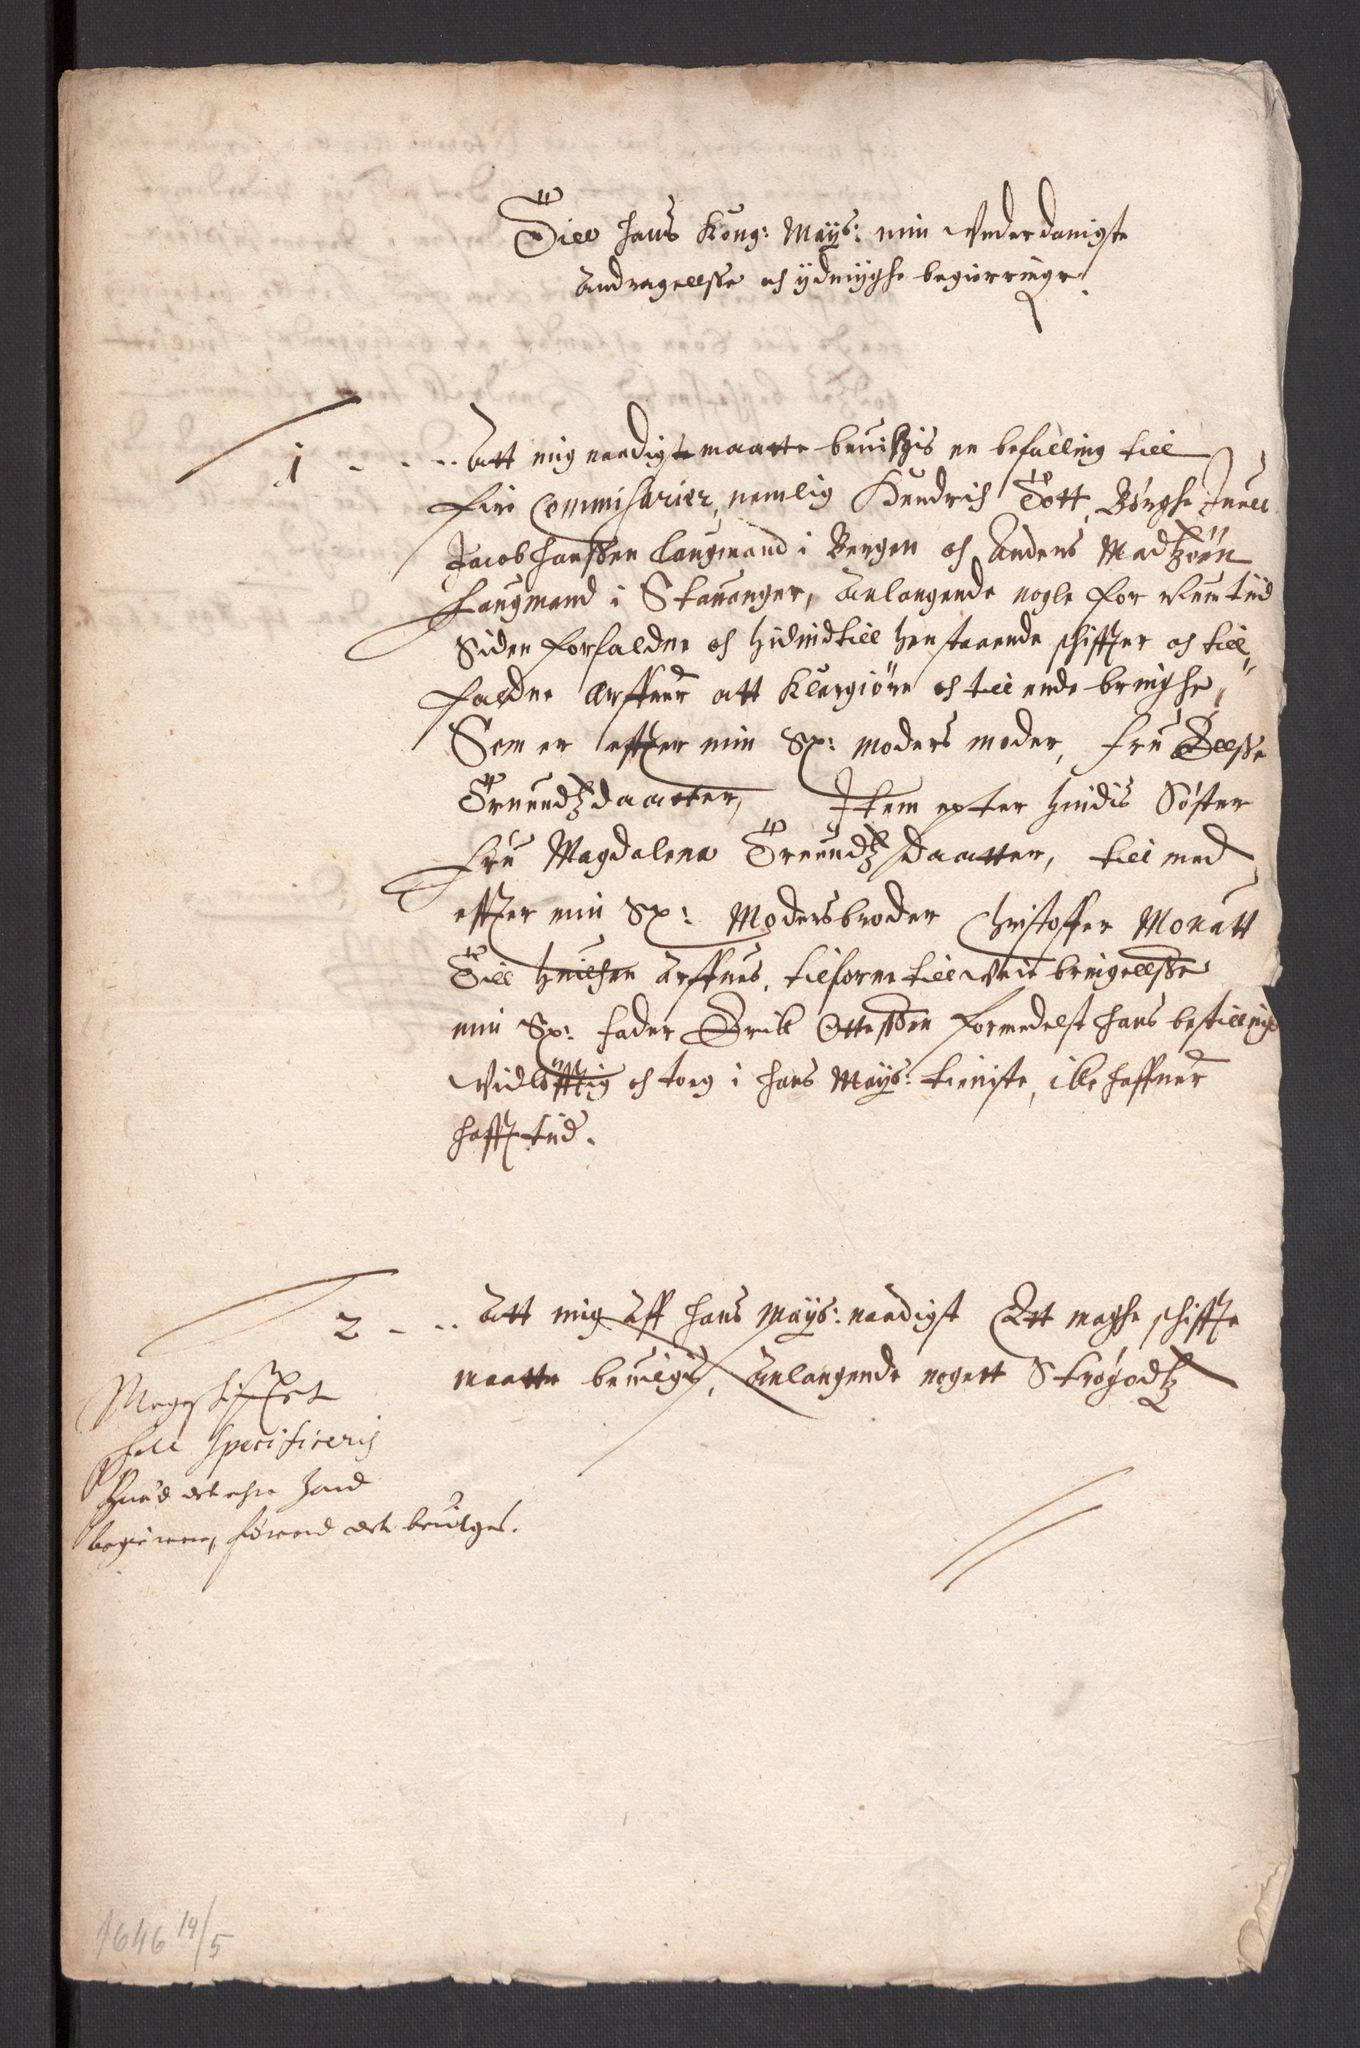 Till hans Kong: Mayts: min Vnderdanigste
Andragellsse och ydmyghe begierringe.
1 - - - Att mig naadigst maatte beuilgis en befalling till
fire Commisarier, nemlig Hendrich Tott, Børghe Juell
Jacob Hanssen Laugmand i Bergen och Anders Madtzøn
Laugmand i Stauanger, Anlangende nogle for rum tiid
Siden forfaldne och hidindtill henstaaende schiffter och till
faldne Arffuer att klargiøre och till ende bringhe,
Som er effter min Sl: moders moder, fru Else
Truudtzdaatter, Item epter hindis Søster
fru Magdalena Truudtzdaatter, till med
effter min Sl: Modersbroder Christoffer Monatt
Till huilchen Arffues, tilforne till veie bringellsse
min Sl: fader Erik Ottessen formedelst hans bestilling
Vidløfftig och tog i hans Mayts: tieniste, ikke haffuer
hafft tiid.
2 - - - Att mig Aff hans Mayts: naadigst Ett maghe schiffte
maatte beuilgis, Anlangende nogett Strøgodtz
Mageskifftet
skall specificeris
huad det ehr hand
begierer, førend det beuilges.
1646 14/5